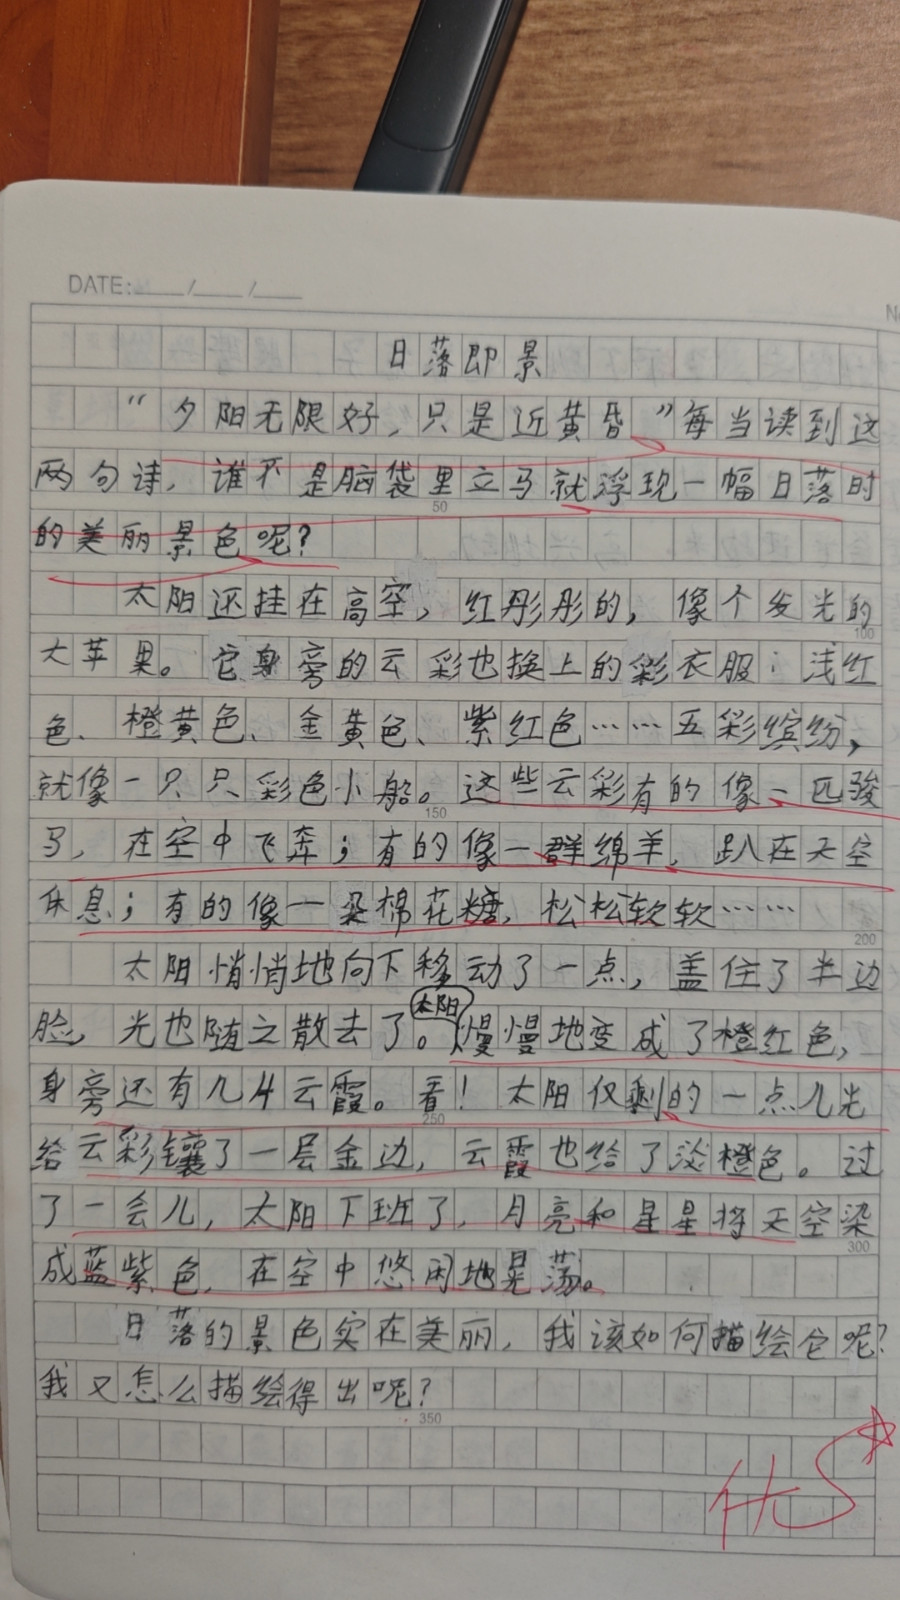 DATE: / /
日落即景
“夕阳无限好，只是近黄昏。”每当读到这
两句诗，谁不是脑袋里立马就浮现一幅日落时
的美丽景色呢？
50
太阳还挂在高空，红彤彤的，像个发光的
100
大苹果。它身旁的云彩也换上的彩衣服：浅红
色、橙黄色、金黄色、紫红色……五彩缤纷，
就像一只只彩色小船。这些云彩有的像一匹骏
150
马，在空中飞奔；有的像一群绵羊，趴在天空
休息；有的像一朵棉花糖，松松软软……
200
太阳悄悄地向下移动了一点，盖住了半边
脸，光也随之散去了。太阳慢慢地变成了橙红色，
身旁还有几片云霞。看！太阳仅剩的一点儿光
250
给云彩镶了一层金边，云霞也给了淡橙色。过
了一会儿，太阳下班了，月亮和星星将天空染
300
成蓝紫色，在空中悠闲地晃荡。
日落的景色实在美丽，我该如何描绘它呢？
我又怎么描绘得出呢？
350
优